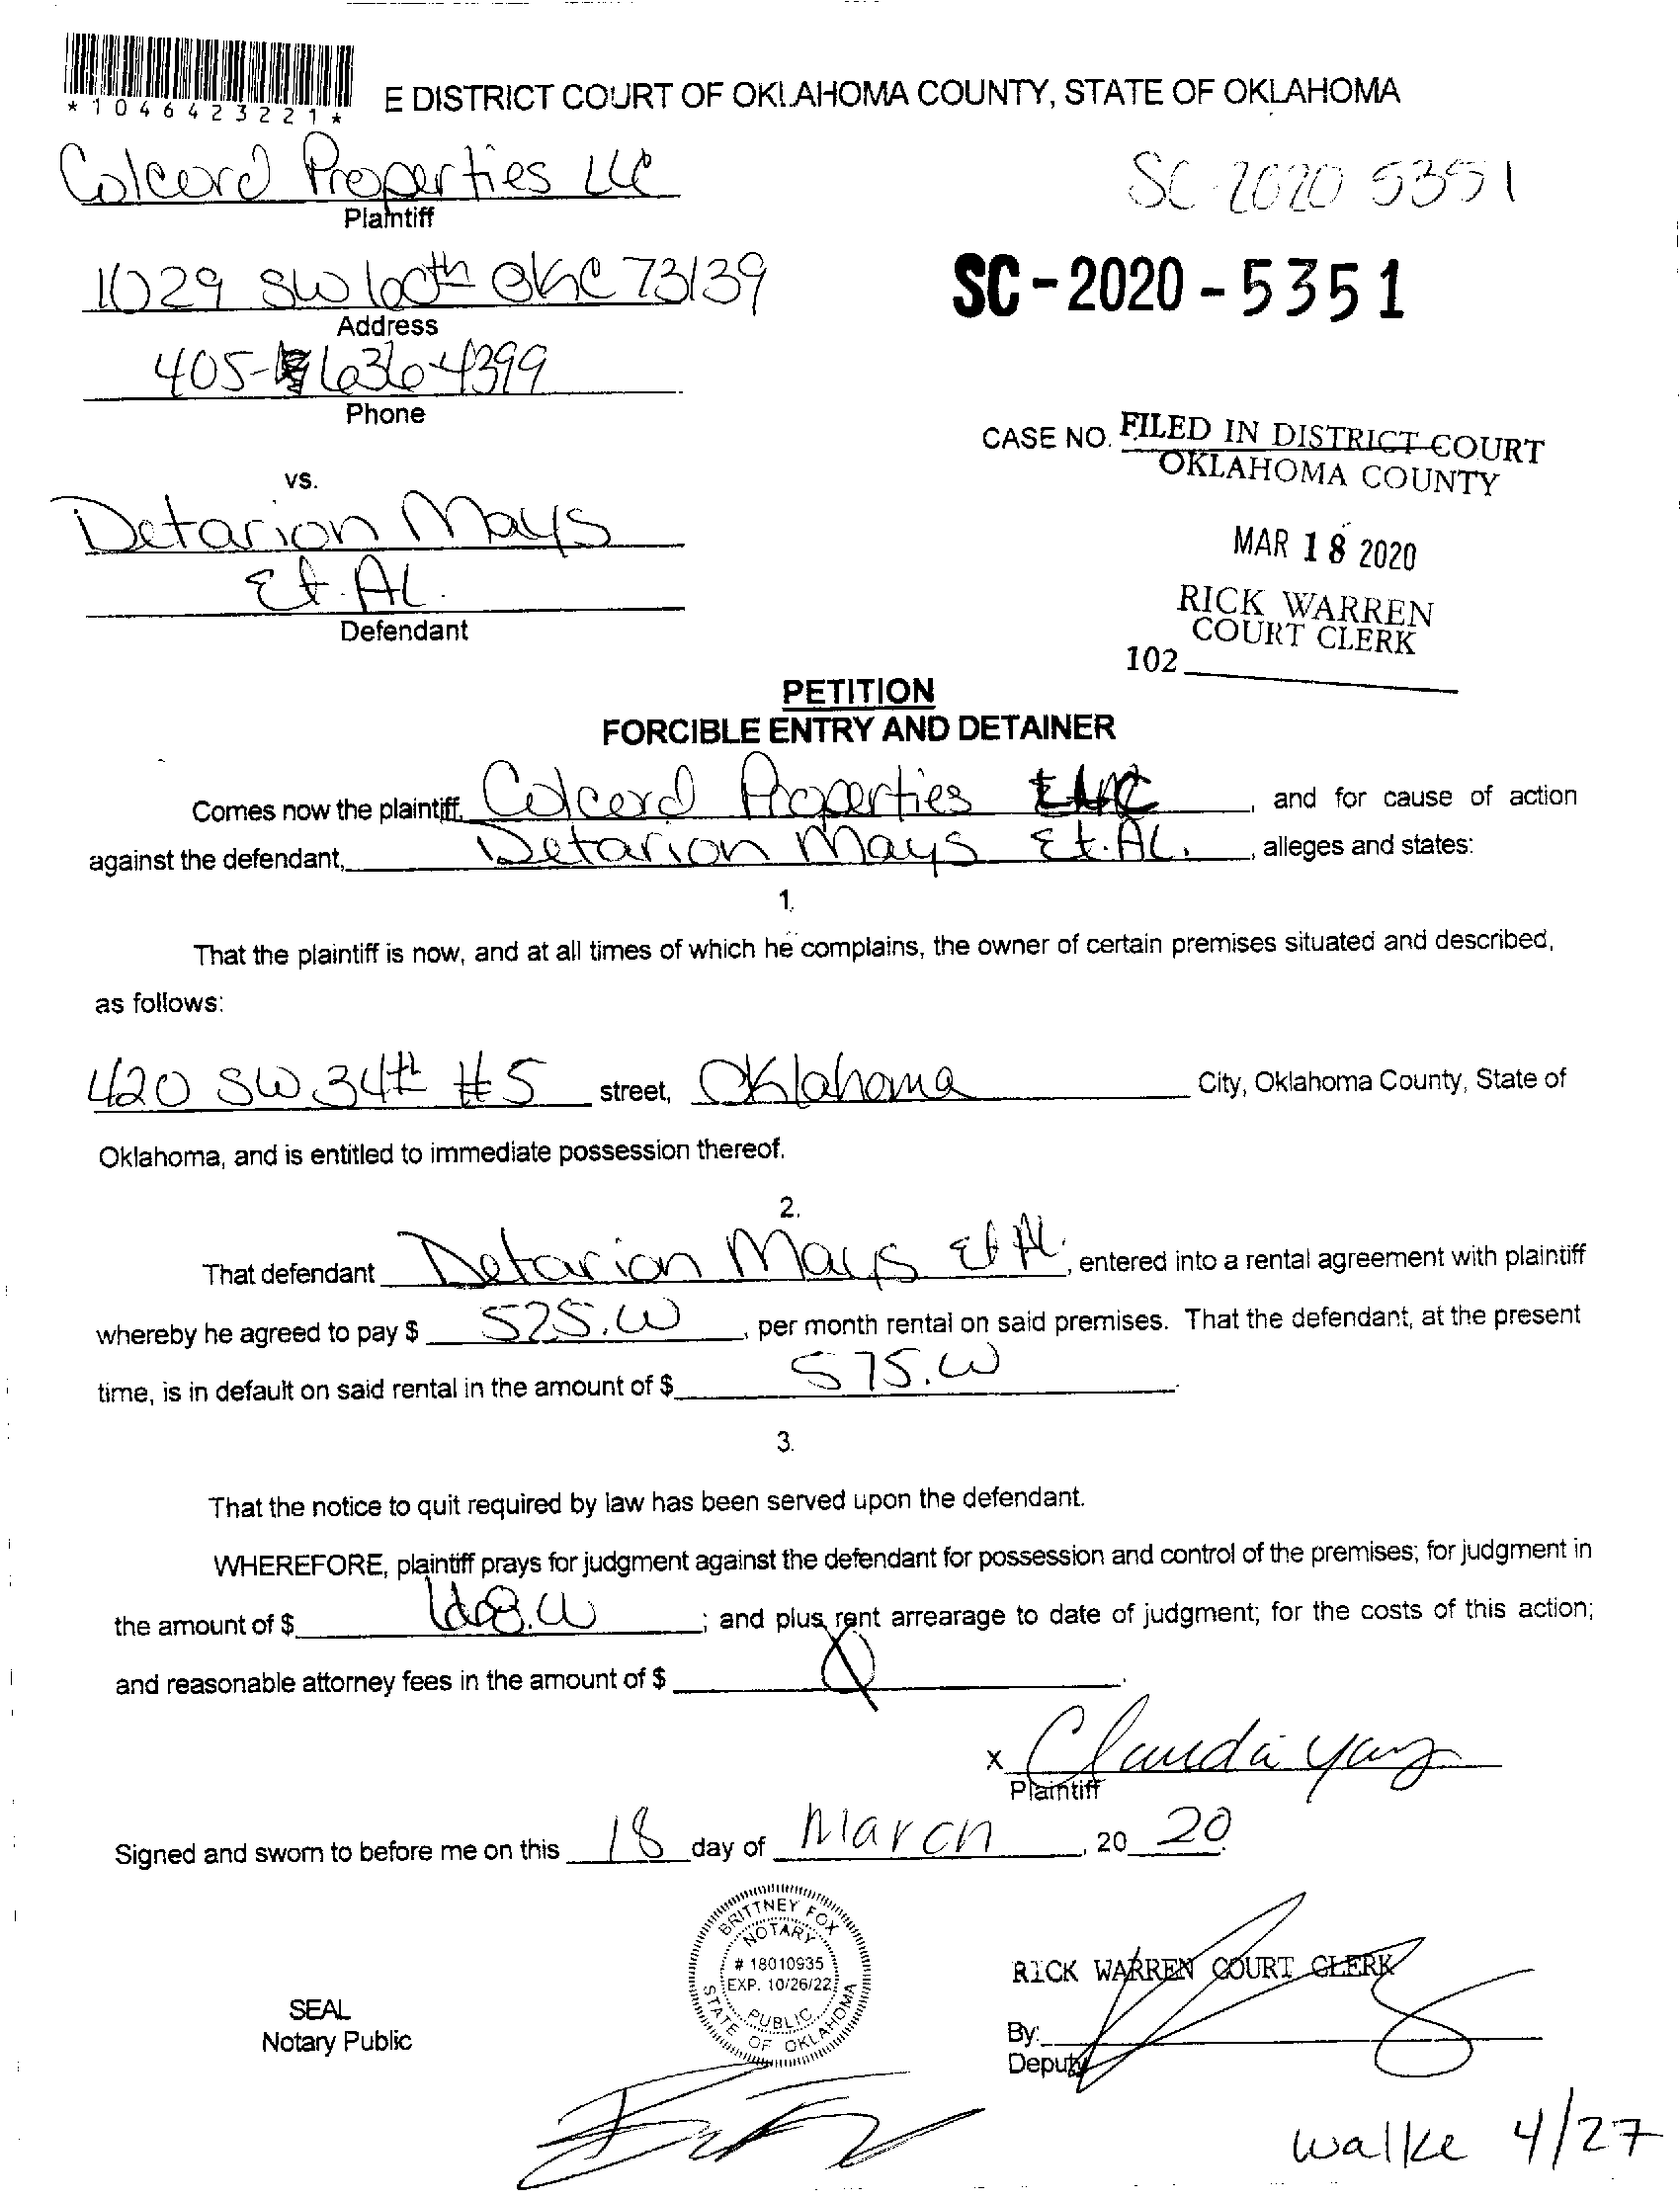 *1046423221*
E DISTRICT COURT OF OKLAHOMA COUNTY, STATE OF OKLAHOMA
Colcord Properties LLC
SC-2020 5351
Plaintiff
1029 SW 100th OKC 73139
SC-2020-5351
Address
405-6364399
Phone
CASE NO. FILED IN DISTRICT COURT
OKLAHOMA COUNTY
vs.
Detarion Mays
MAR 18 2020
Et. AL.
RICK WARREN
COURT CLERK
Defendant
102
PETITION
FORCIBLE ENTRY AND DETAINER
Comes now the plaintiff, Colcord Properties, and for cause of action
against the defendant, Detarion Mays Et. AL., alleges and states:
1.
That the plaintiff is now, and at all times of which he complains, the owner of certain premises situated and described,
as follows:
420 SW 34th #5 street, Oklahoma City, Oklahoma County, State of
Oklahoma, and is entitled to immediate possession thereof.
2.
That defendant Detarion Mays Et Al., entered into a rental agreement with plaintiff
whereby he agreed to pay $ 525.00, per month rental on said premises. That the defendant, at the present
time, is in default on said rental in the amount of $ 575.00.
3.
That the notice to quit required by law has been served upon the defendant.
WHEREFORE, plaintiff prays for judgment against the defendant for possession and control of the premises; for judgment in
the amount of $ ; and plus rent arrearage to date of judgment; for the costs of this action;
and reasonable attorney fees in the amount of $
x Claudia
Plaintiff
Signed and sworn to before me on this 18 day of March, 20 20.
BRITTNEY FOX
NOTARY
# 18010935
EXP. 10/26/22
PUBLIC
STATE OF OKLAHOMA
RICK WARREN COURT CLERK
SEAL
Notary Public
By:
Deputy
walke 4/27